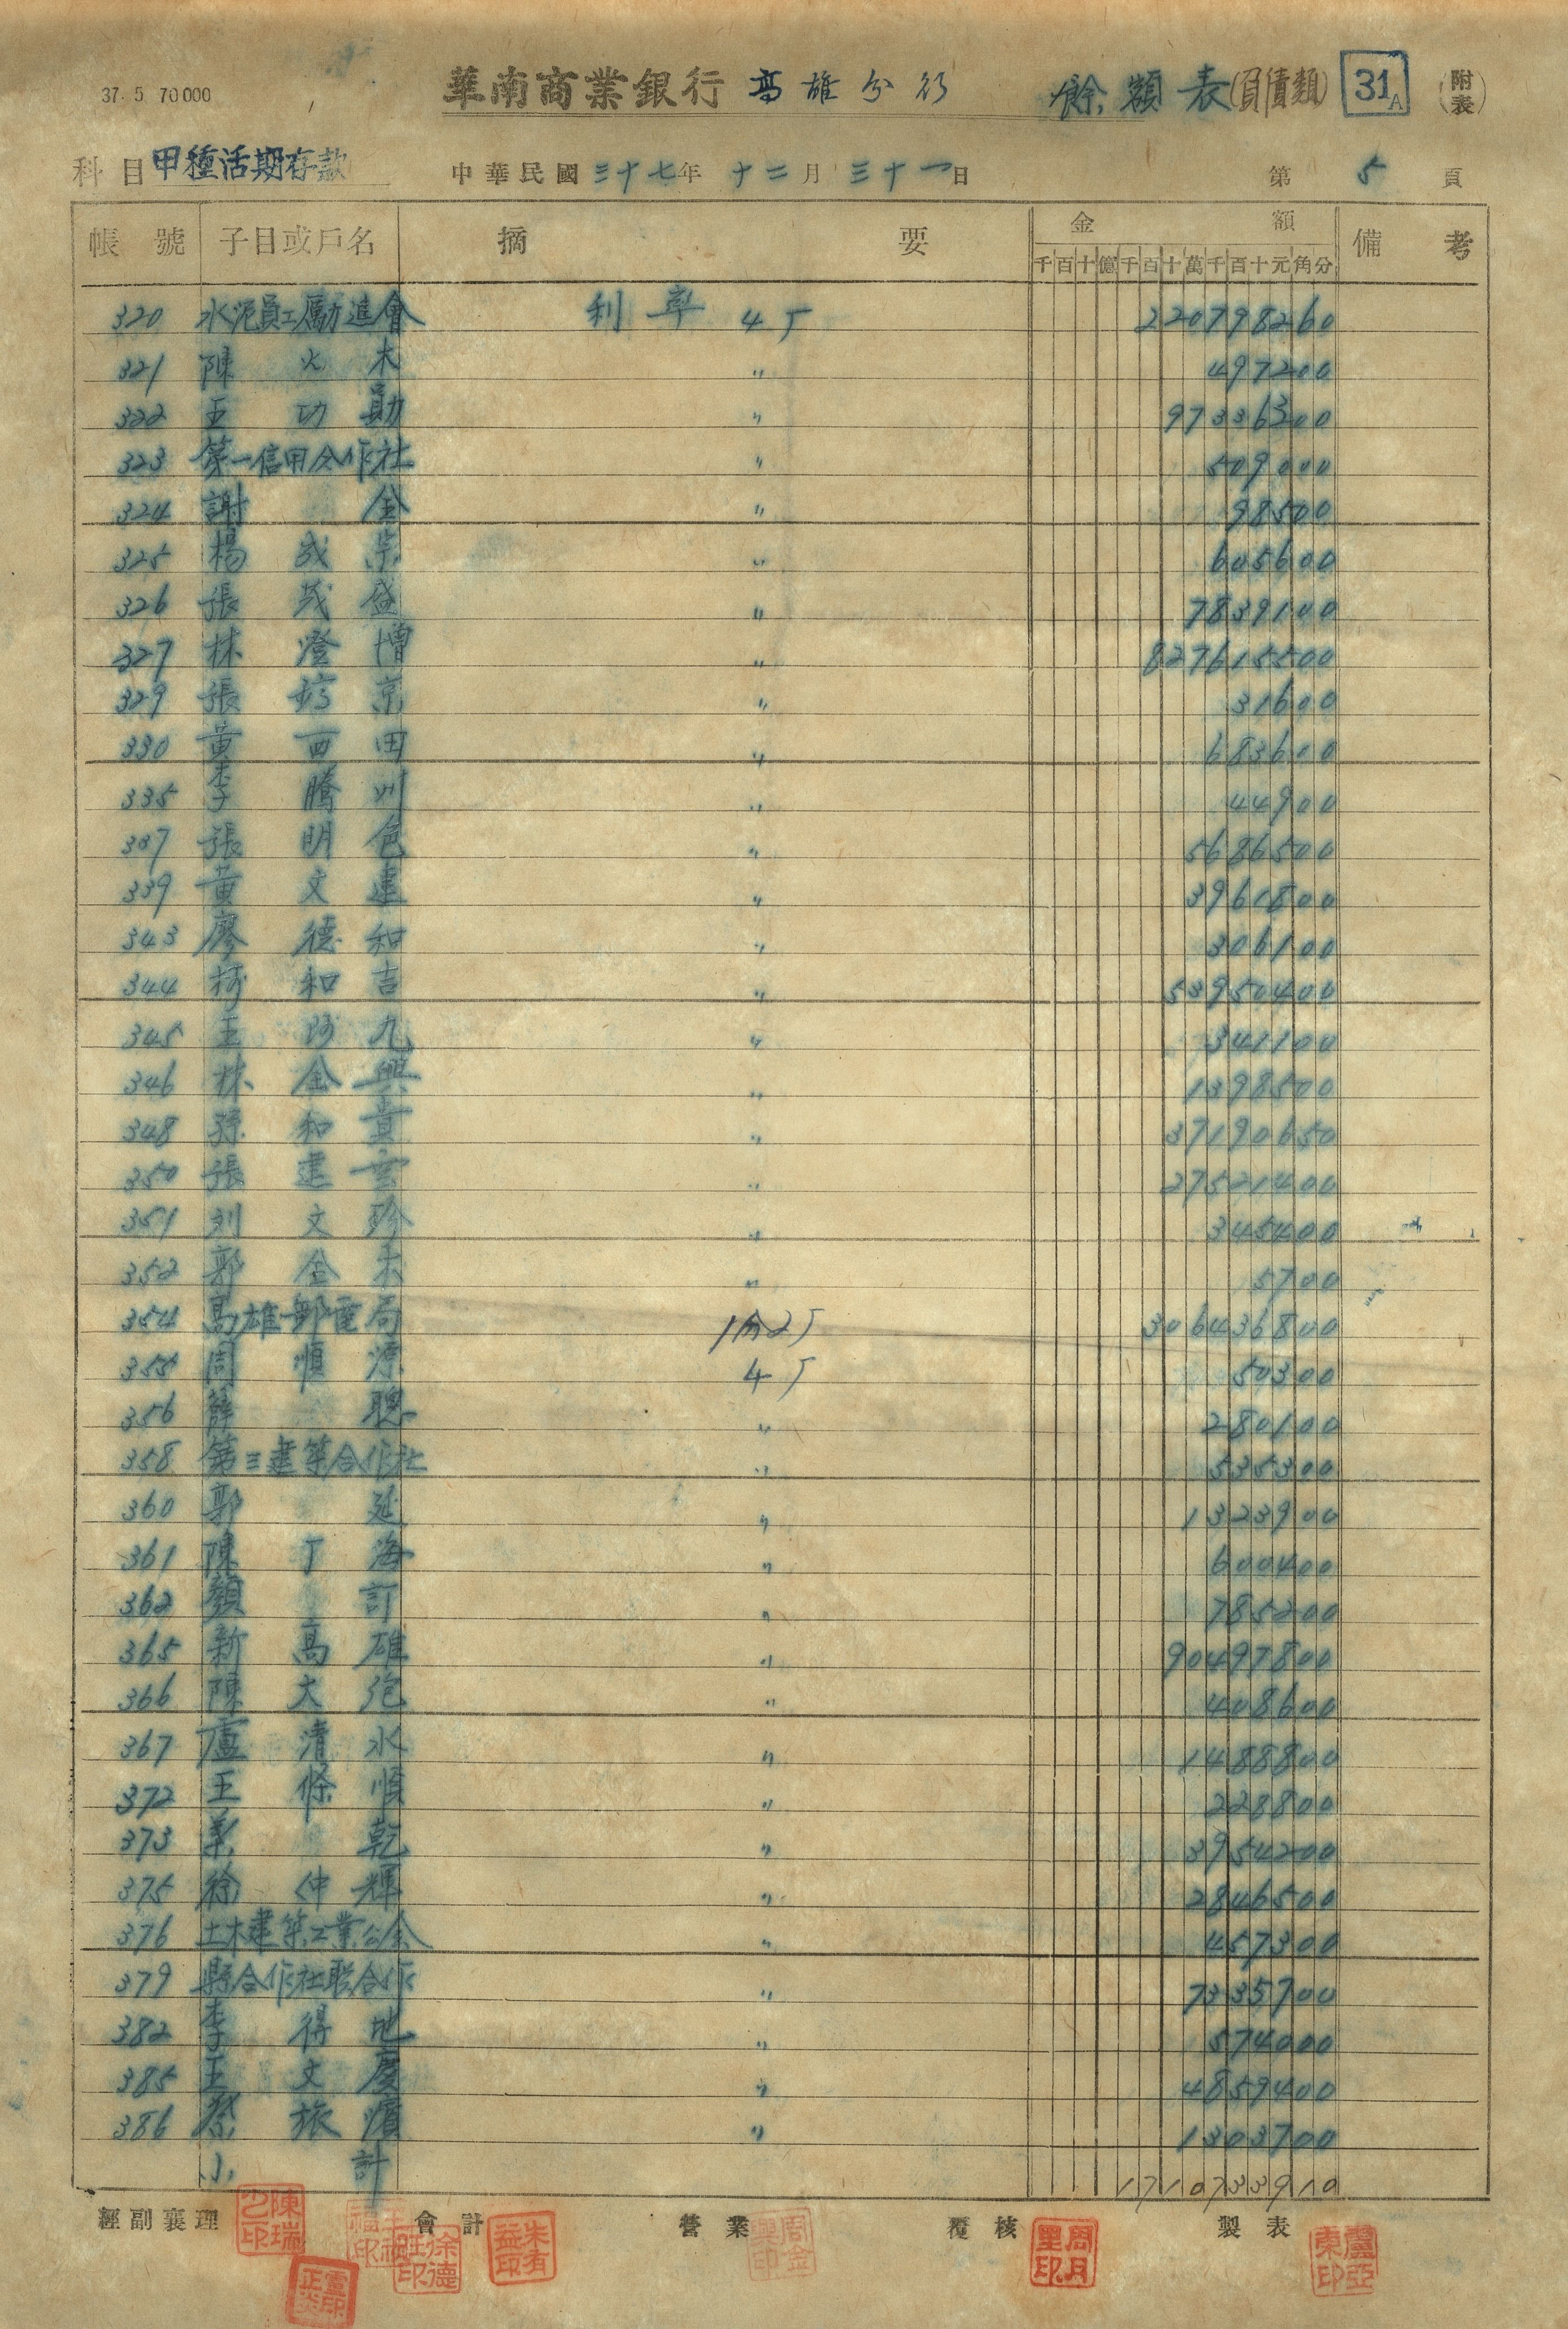 37. 5 70000
華南商業銀行 高雄分行 餘額表(負債類) 31A (附表)
科目 甲種活期存款 中華民國三十七年十二月三十一日 第5頁
帳號 子目或戶名 摘要 金額 備考
千百十億千百十萬千百十元角分
320 水泥員工勵進會 利率 4厂 220798260
321 陳火木 〃 497200
322 王功勛 〃 97336300
323 第一信用合作社 〃 509000
324 謝金 〃 98500
325 楊成宗 〃 605600
326 張茂盛 〃 7839100
327 林澄增 〃 827615500
329 張京 〃 31600
330 黃西田 〃 683600
335 李騰川 〃 44900
337 張明色 〃 5686500
339 黃文建 〃 3961800
343 廖德和 〃 306100
344 柯和吉 〃 53950400
345 王阿九 〃 341100
346 林金興 〃 1398500
348 孫和貴 〃 37190650
350 張建雲 〃 27521400
351 刘文珍 〃 345400
352 郭金 〃 5700
354 高雄郵電局 1分2厂 306436800
355 周順源 4厂 50300
356 薛聰 〃 280100
358 第三建築合作社 〃 535300
360 郭延 〃 1323900
361 陳丁海 〃 600400
362 顏訂 〃 785200
365 新高雄 〃 90497800
366 陳大炮 〃 408600
367 盧清水 〃 1488800
372 王條順 〃 228800
373 葉乾 〃 3954200
375 徐仲輝 〃 2846500
376 土木建築工業公会 〃 457300
379 縣合作社联合作 〃 7335700
382 李得地 〃 574000
385 王文慶 〃 4859400
386 蔡旅濱 〃 1303700
小計 1710733910
經副襄理 會計 營業 覆核 製表
陳瑞
徐德旺印
朱有益印
周金興印
周月里印
盧亞東印